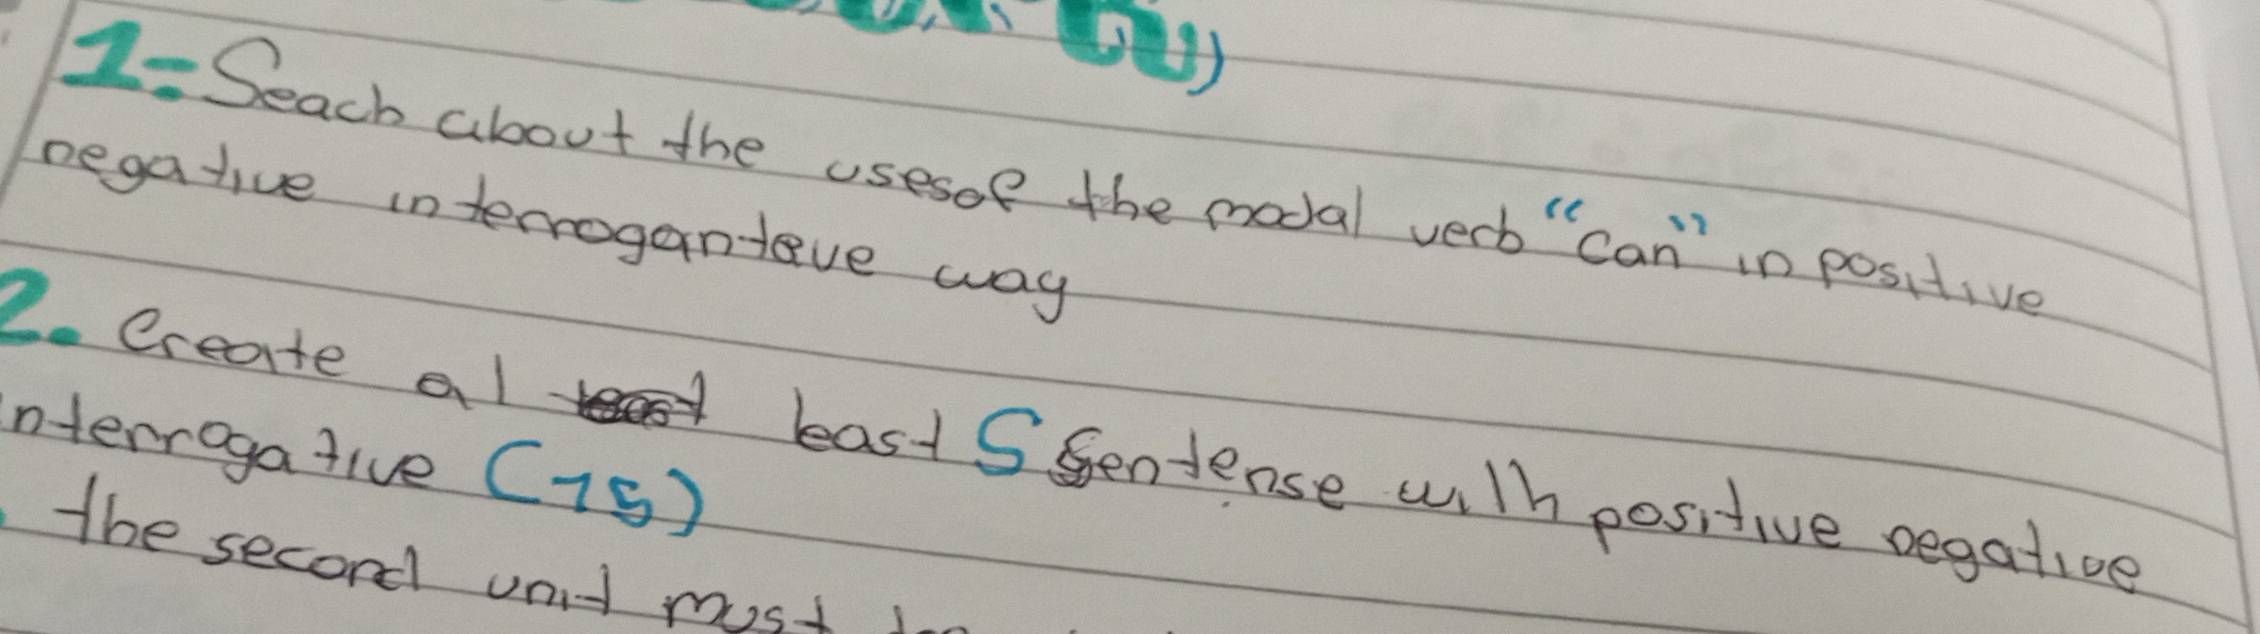 1= Seach about the usesof the modal verb "can" in positive
negative interroganteve way
2. Create al least 5 sentense with positive negative
interrogative (15)
the second unit must